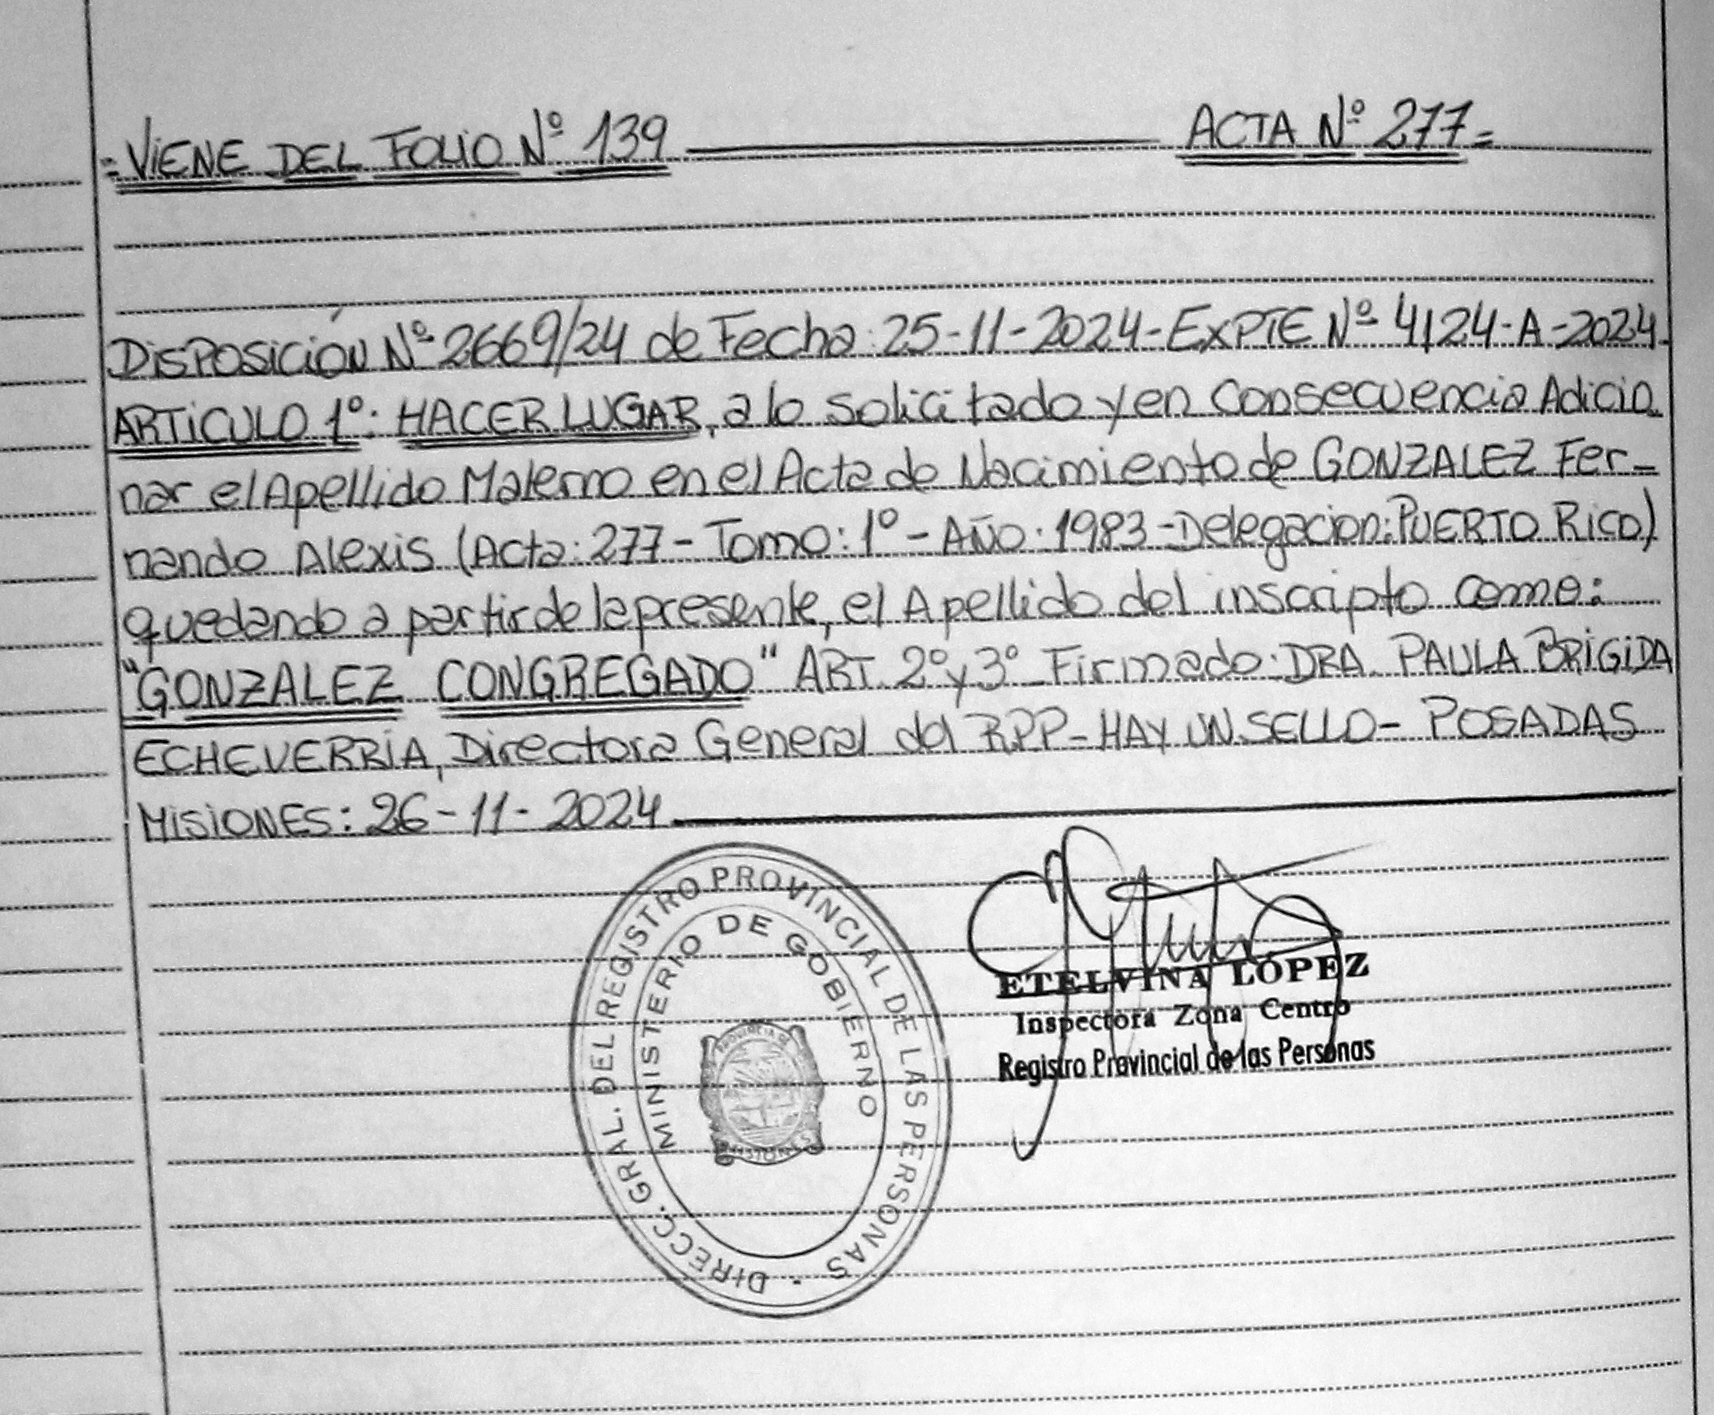 = VIENE DEL FOLIO Nº 139 ACTA Nº 277 =
DISPOSICIÓN Nº 2669/24 de Fecha: 25-11-2024 - EXPTE Nº 4124-A-2024.
ARTICULO 1º: HACER LUGAR, a lo solicitado y en consecuencia Adicio
nar el Apellido Materno en el Acta de Nacimiento de GONZALEZ Fer-
nando Alexis (Acta: 277 - Tomo: 1º - AÑO: 1983 - Delegacion: PUERTO RICO)
quedando a partir de la presente, el Apellido del inscripto como:
"GONZALEZ CONGREGADO" ART. 2º y 3º Firmado: DRA. PAULA BRIGIDA
ECHEVERRÍA, Directora General del RPP - HAY UN SELLO - POSADAS
MISIONES: 26-11-2024
DIRECC. GRAL. DEL REGISTRO PROVINCIAL DE LAS PERSONAS
MINISTERIO DE GOBIERNO
PROVINCIA DE
MISIONES
ETELVINA LÓPEZ
Inspectora Zona Centro
Registro Provincial de las Personas